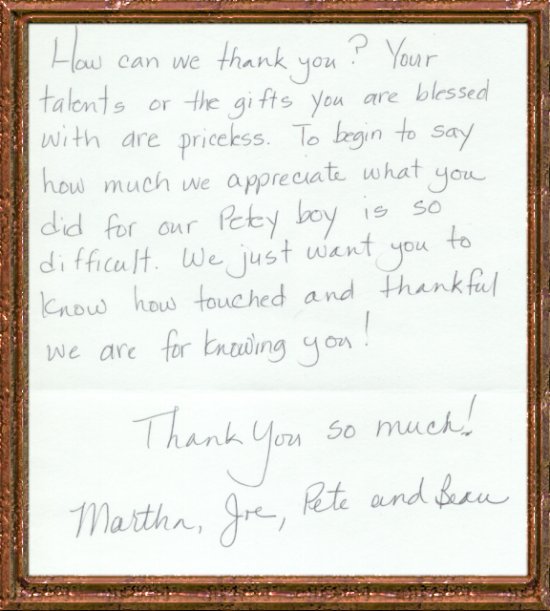 How can we thank you? Your
talents or the gifts you are blessed
with are priceless. To begin to say
how much we appreciate what you
did for our Petey boy is so
difficult. We just want you to
know how touched and thankful
we are for knowing you!
Thank You so much!
Martha, Joe, Pete and Beau